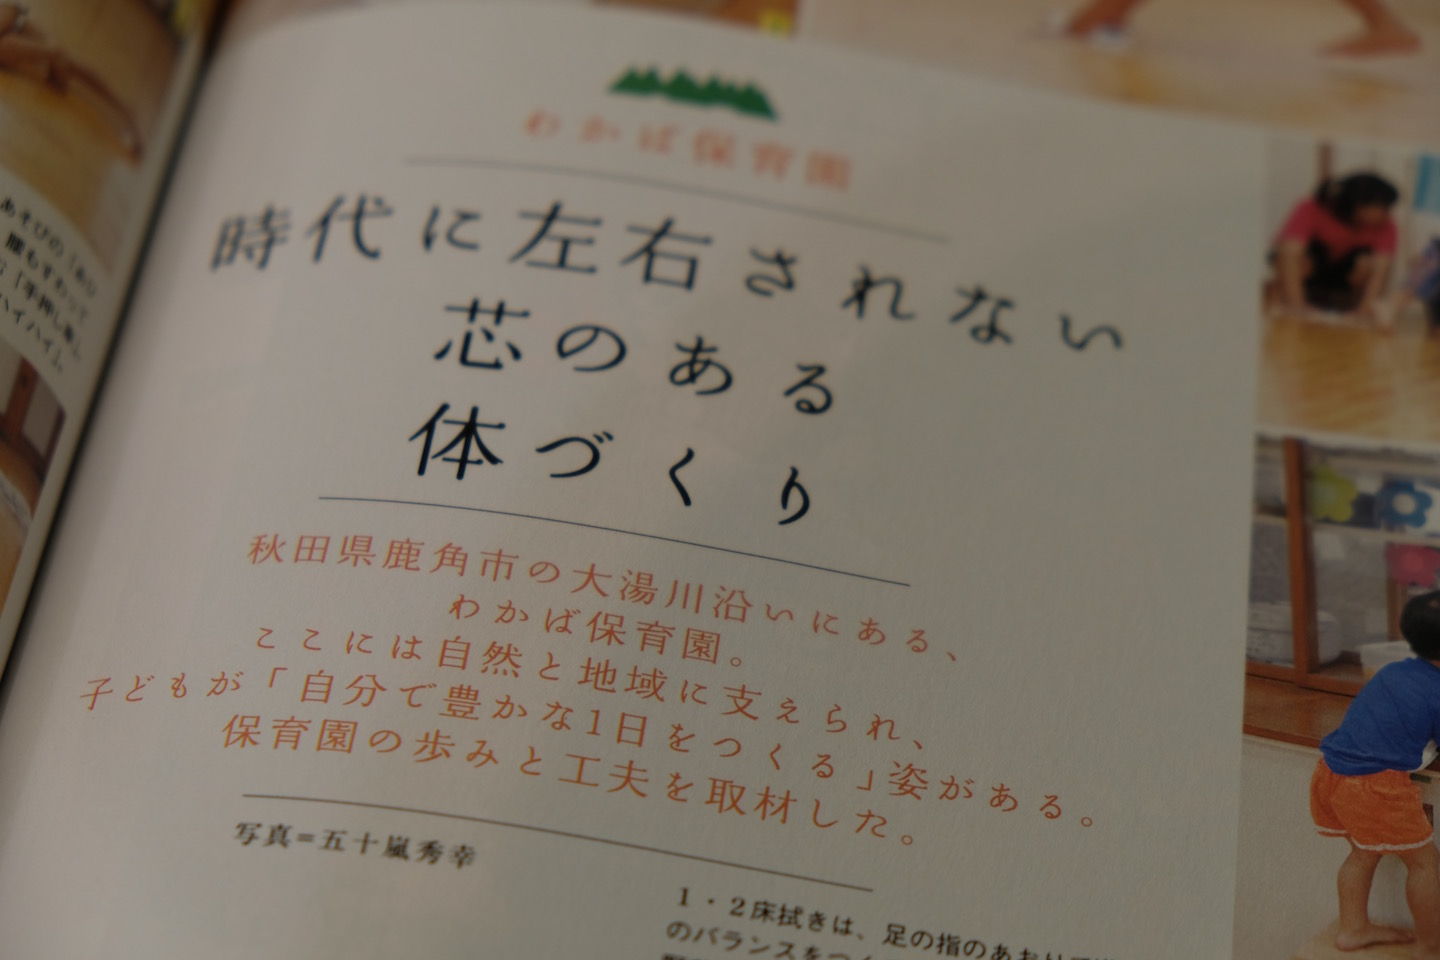 わかば保育園
時代に左右されない
芯のある
体づくり
秋田県鹿角市の大湯川沿いにある、
わかば保育園。
ここには自然と地域に支えられ、
子どもが「自分で豊かな1日をつくる」姿がある。
保育園の歩みと工夫を取材した。
写真=五十嵐秀幸
1・2床拭きは、足の指のあおり
のバランスをつく
あそびの「
腰もすわって
「手押し車」
ハイハイ」。